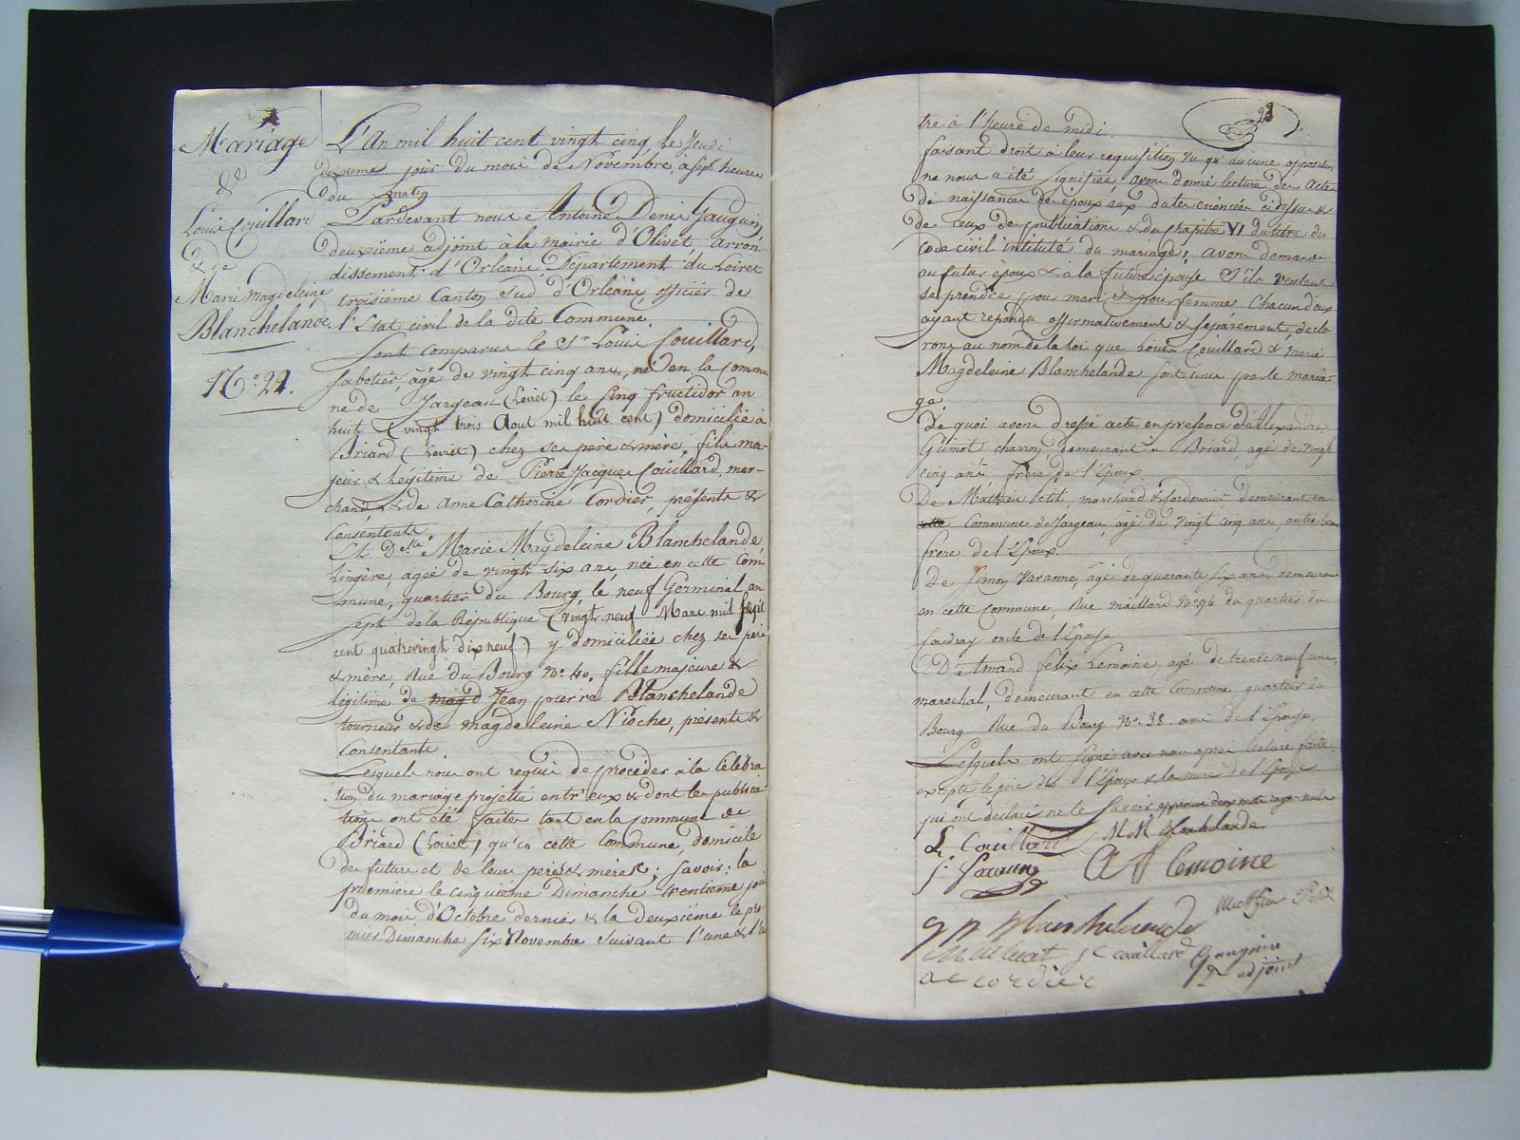 Mariage
de
Louis Couillard
& de
Marie Magdeleine
Blanchelande.
N.º 24.
L'An mil huit cent vingt cinq, le Jeudi
jour du mois de Novembre, à sept heures
du matin
Pardevant nous Antoine Denis Gauguin,
deuxième adjoint à la mairie d'Olivet, arron-
dissement d'Orléans, Département du Loiret
troisième Canton sud d'Orléans, officier de
l'Etat civil de la dite Commune
Sont comparus le Sr Louis Couillard,
sabotier, âgé de vingt cinq ans, né en la commu
ne de Jargeau (Loiret) le cinq fructidor an
huit (vingt trois Aout mil huit cent) domicilié à
Briard (Loiret) chez ses père & mère, fils ma-
jeur & légitime de Pierre Jacques Couillard, mar-
chand, & de Anne Catherine Cordier, présents &
Consentents
Et Delle Marie Magdeleine Blanchelande,
Lingère, agée de vingt six ans, née en cette Com
mune, quartier du Bourg, le neuf Germinal an
sept de la République (vingt neuf Mars mil sept
cent quatrevingt dix neuf) y domiciliée chez ses père
& mère, Rue du Bourg No. 40, fille majeure &
légitime de Jean pierre Blanchelande
tourneur & de magdeleine Nioche, présents &
Consentants
Lesquels nous ont requis de procéder à la Célébra
tion du mariage projetté entr'eux & dont les publica
tions ont été faites tant en la commune de
Briard (Loiret) qu'en cette Commune, domicile
des futurs et de leurs pères & mères; savoir: la
première le cinquième Dimanche trentième jour
du mois d'Octobre dernier & la deuxième le pre
mier Dimanche six Novembre suivant l'une & l'au
tre à l'heure de midi.
faisant droit à leur requisition vu qu'aucune opposition
ne nous a été signifiée, avons donné lecture des actes
de naissance des époux aux dates énoncées ci dessus &
de ceux de publications & du chapitre VI du titre du
Code civil intitulé du mariage, avons demandé
au futur époux & à la future épouse s'ils veulent
se prendre pour mari et pour femme Chacun d'eux
ayant répondu affirmativement & séparément, décla
rons au nom de la loi que Louis Couillard & Marie
Magdeleine Blanchelande sont unis par le maria-
ge.
De quoi avons dressé acte en présence d'Alexandre
Guinot charron, demeurant à Briard, agé de vingt
cinq ans frère de l'Epoux
De Mathieu Petit, marchand & Cordonnier demeurant en
commune de Jargeau, âgé de vingt cinq ans, autre beau
frère de l'Epoux.
De Simon Varanne, âgé de quarante six ans demeurant
en cette commune, Rue No. 94 du quartier du
oncle de l'Epouse
D'Armand félix Lemoine, agé de trente neuf ans,
marechal, demeurant en cette Commune quartier du
Bourg Rue du Bourg No. 38 ami de l'Epouse,
Lesquels ont signé avec nous après lecture faite
excepté le père de l'Epoux & la mère de l'Epouse
qui ont déclaré ne le savoir
L Couillard M M Blanchelande
A F Lemoine
Petit
J P Blanchelande
Couillard Gauguin
ac cordier adjoint